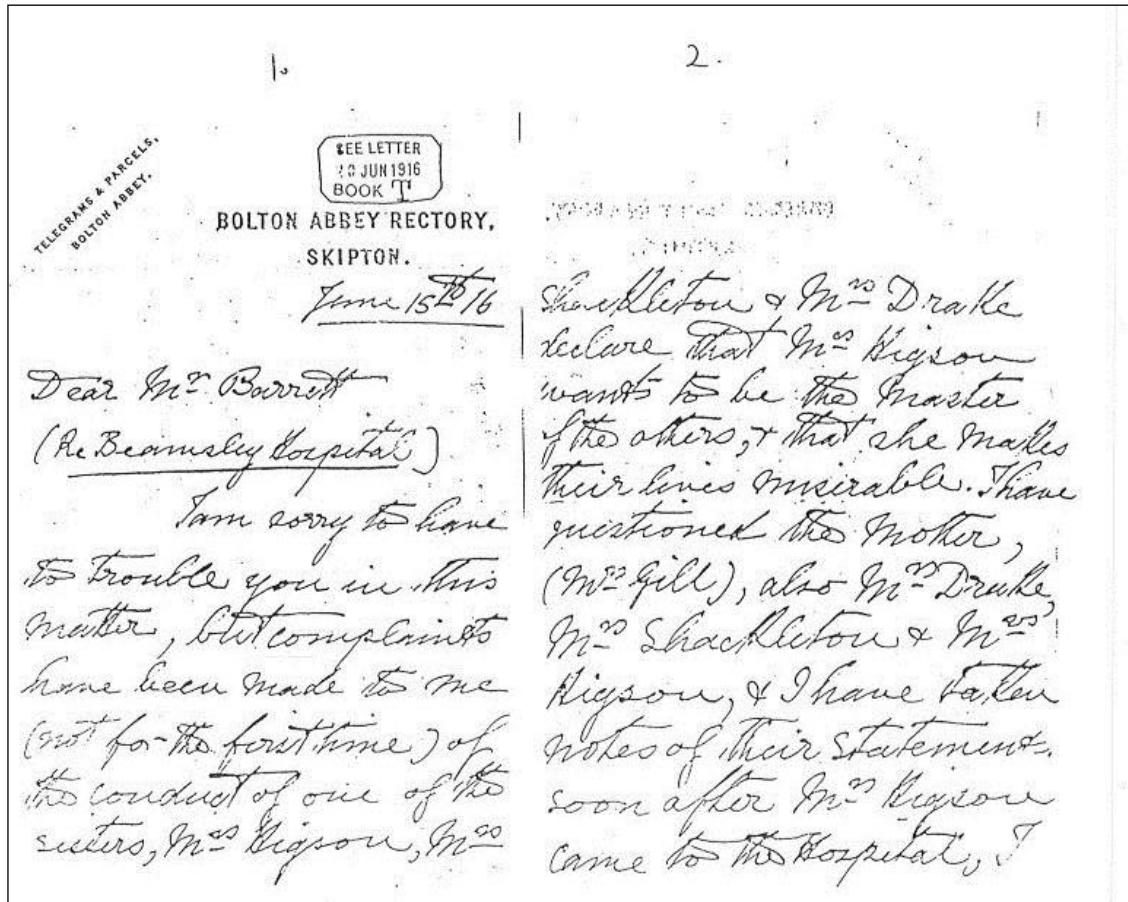 1.
TELEGRAMS & PARCELS,
BOLTON ABBEY.
SEE LETTER
20 JUN 1916
BOOK T
BOLTON ABBEY RECTORY,
SKIPTON.
June 15th 16
Dear Mr Barrett
(Re Beamsley Hospital)
I am sorry to have
to trouble you in this
matter, but complaints
have been made to me
(not for the first time) of
the conduct of one of the
sisters, Mrs Higson, Mrs
2.
Shackleton & Mrs Drake
declare that Mrs Higson
wants to be the Master
of the others, & that she makes
their lives misirable. I have
questioned the Mother,
(Mrs Gill), also Mrs Drake,
Mrs Shackleton & Mrs
Higson, & I have taken
notes of their statements.
soon after Mrs Higson
came to the Hospital, I